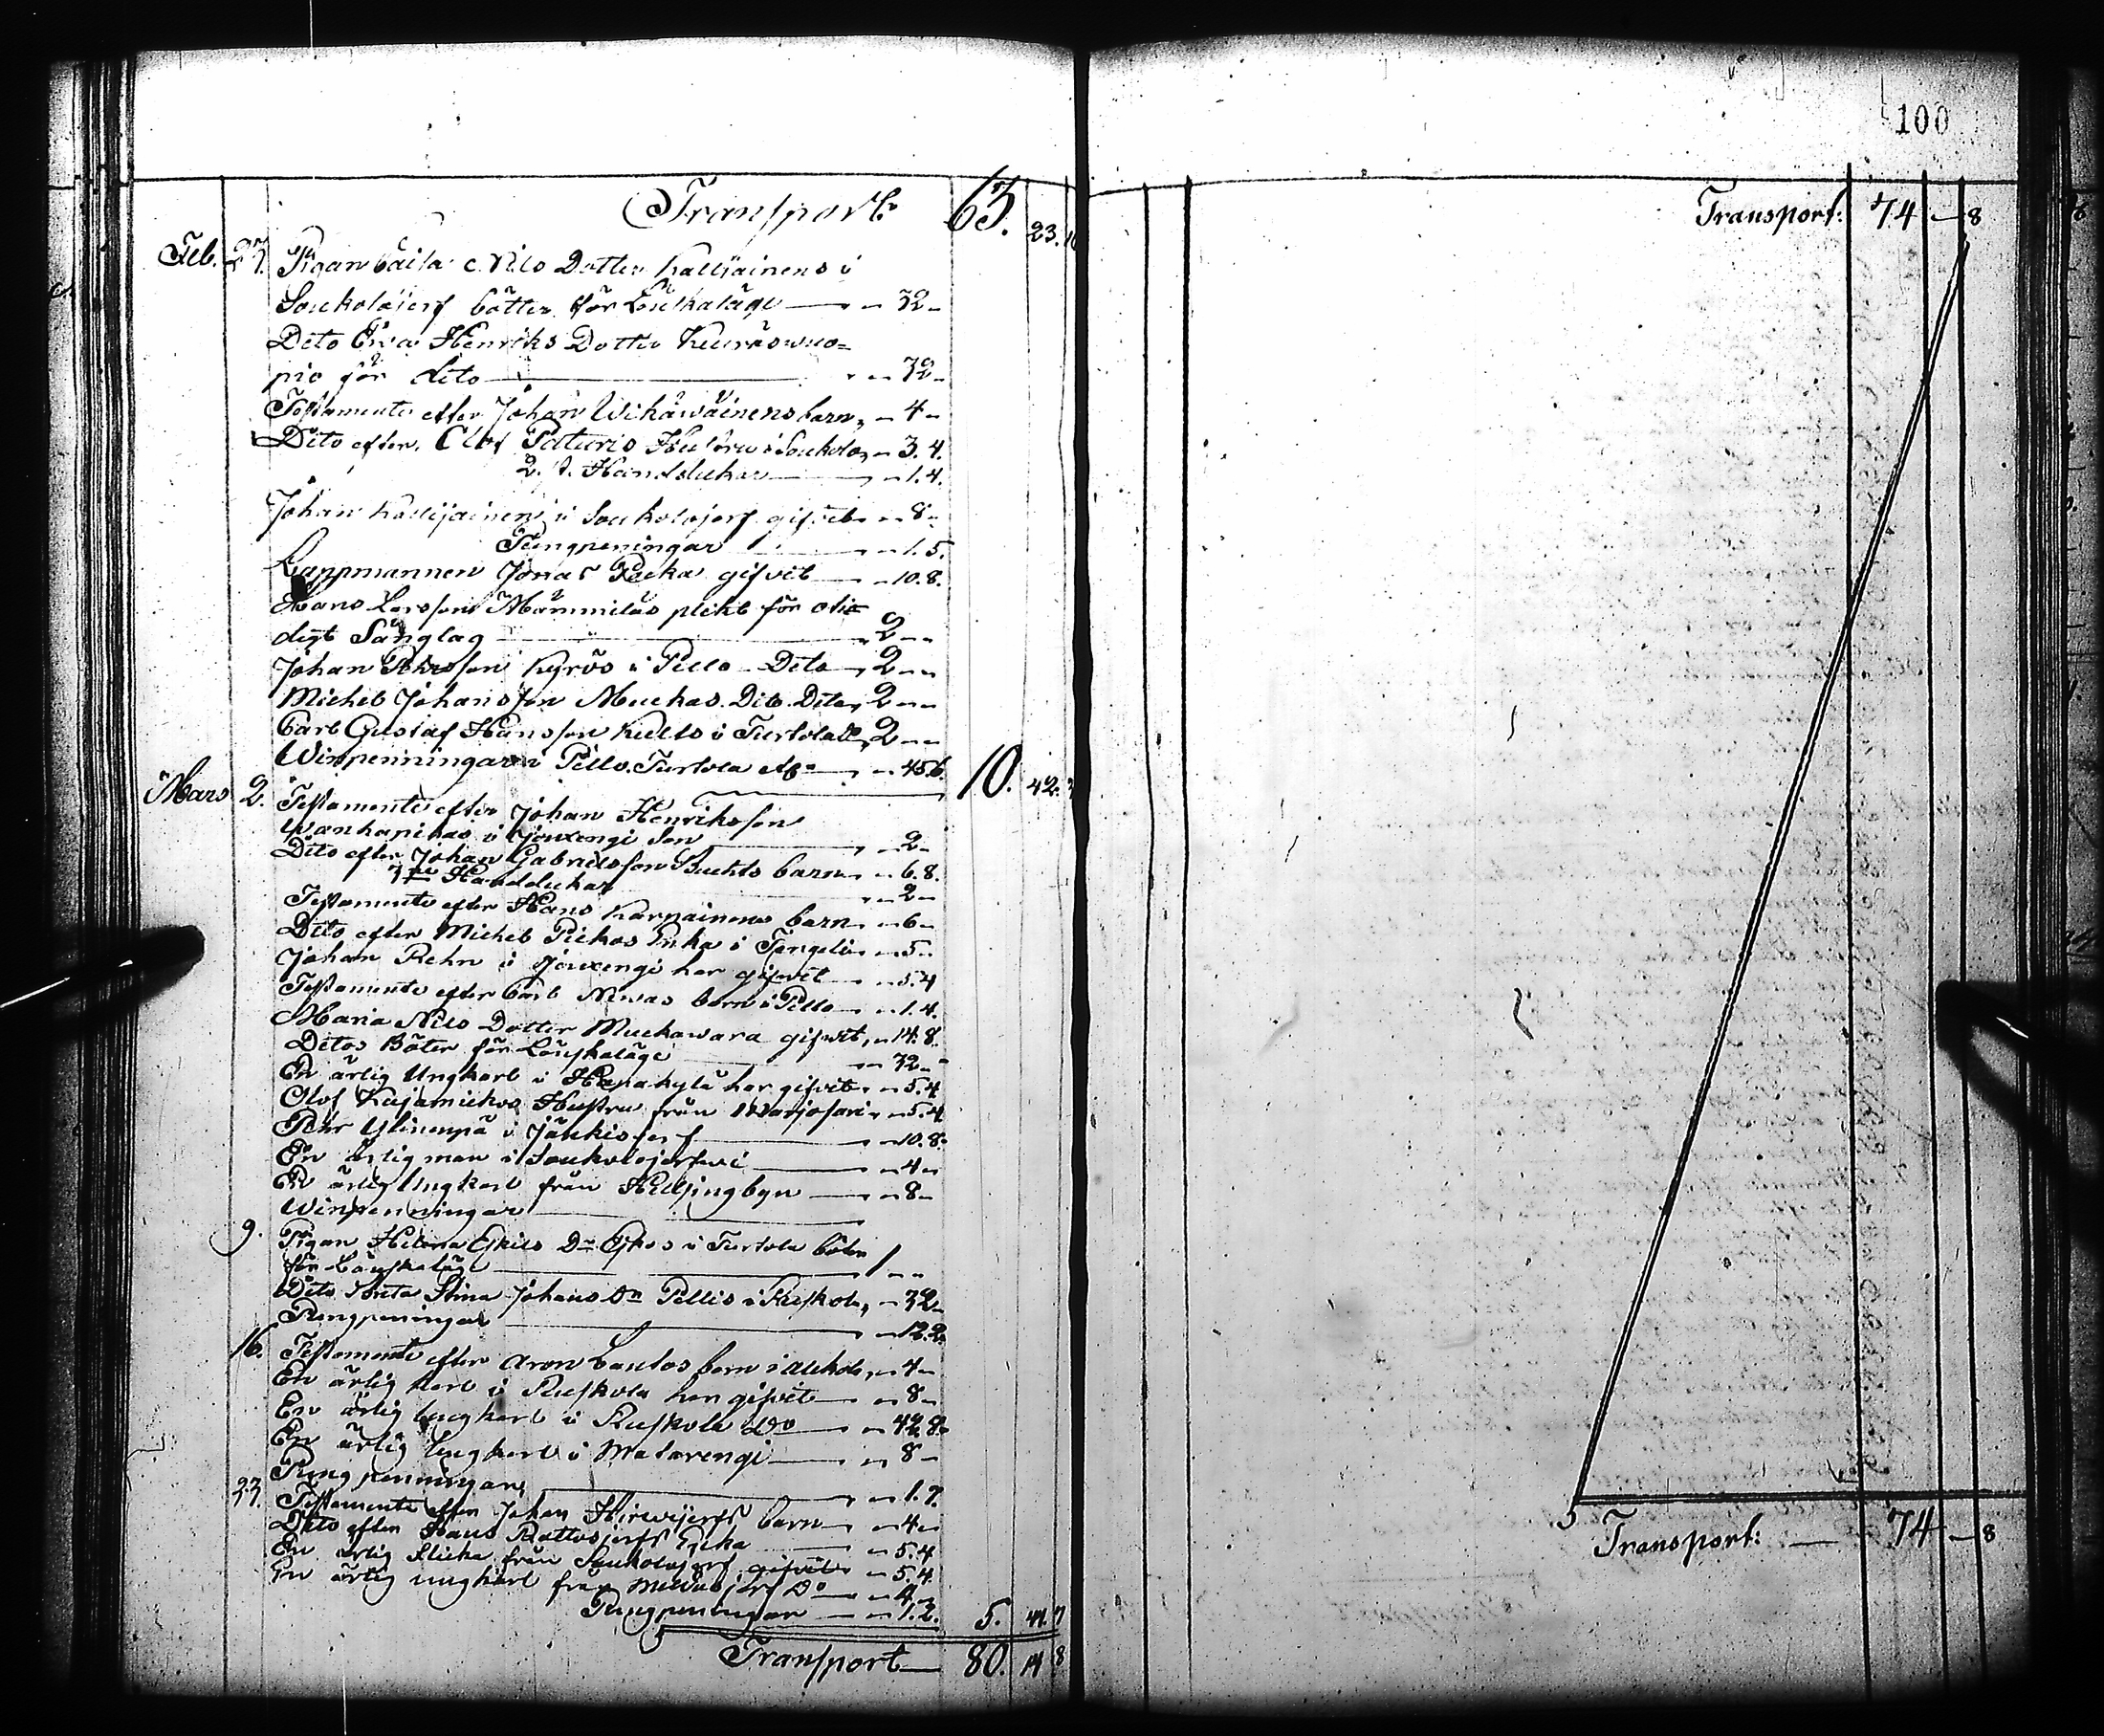 Transport 63. 23.
Feb. 27. Pigan Caisa c. Nils Dotter Kallijainens i
Soukolojerf böter för Löuskaläge — " — 32 —
Dito Ewa Henriks Dotter Kuuraswuo=
pio för dito — " — 32 —
Testamente efter Johan Wikäwäinens barn, — 4 —
Dito efter Olof Paturis Hustru i Soukolo, — 3. 4.
2. st. Handdukar — 1. 4.
Johan Kallijainen i Soukolojerf gifvit — 8 —
Pungpeningar — 1. 5.
Lappmannen Jonas Pecka gifvit — 10. 8.
Hans Larsson Mämmiläs plikt för otid-
digt Sänglag — 2 — —
Johan Pehrsson Kyrös i Pello Dito — 2 — —
Michel Johansson Muckas Dito Dito, 2 — —
Carl Gustaf Hansson Kults i Turtola D:o, 2 — —
Winpenningar i Pello, Turtola — 45. 6. 10. 42.
Mars 2. Testamente efter Johan Henriksson
Wanhapihas i Jouxengi Son — 2 —
Dito efter Johan Gabrielsson Buchts barn — 6. 8.
Handdukar — 2 —
Testamente efter Hans Karpainens barn — 6 —
Dito efter Michel Pickas Enka i Tengeli — 5 —
Johan Rehn i Jouxengi har gifwit — 5. 4
Testamente efter Carl Niwas barn i Pello — 1. 4.
Maria Nils Dotter Muckawara gifwit, — 14. 8.
Detos Böter för Löuskaläge — 32 —
En ärlig Ungkarl i har gifvit — 5. 4
Olof Kujamickos Hustru från Marjosari — 5. 4
Pehr Ylinenpä i Jänkisjerf — 10. 8.
En ärlig man i Soukolojerfwi — 4 —
En ärlig Ungkarl från Helsingbyn — 8 —
Winpenningar
9. Pigan Helena Eskils D:r i Turtola böter
för Löuskaläge — 1 — —
Dito Greta Stina Johans D:r Pellis i Ruskola, — 32 —
Pungpeningar — 12. 2.
16. Testamente efter Aron Lantos barn i — 4 —
En ärlig karl i Ruskola har gifvit — 8 —
En ärlig ungkarl i Ruskola D:o — 42. 8.
En ärlig Ungkarl i Matarengi — 8 —
Pung penningar — 1. 7.
23. Testamente efter Johan Hirwijerfs barn — 4 —
Dito efter Hans Rattosjerfs Enka — 5. 4
En ärlig flicka från Soukolojerf gifvit — 5. 4
En ärlig ungkarl från D:o — 4 —
Pungpeningar — 1. 2. 5. 44. 7
Transport — 80. 14 8
100
Transport: 74 — 8
Transport: — 74 — 8